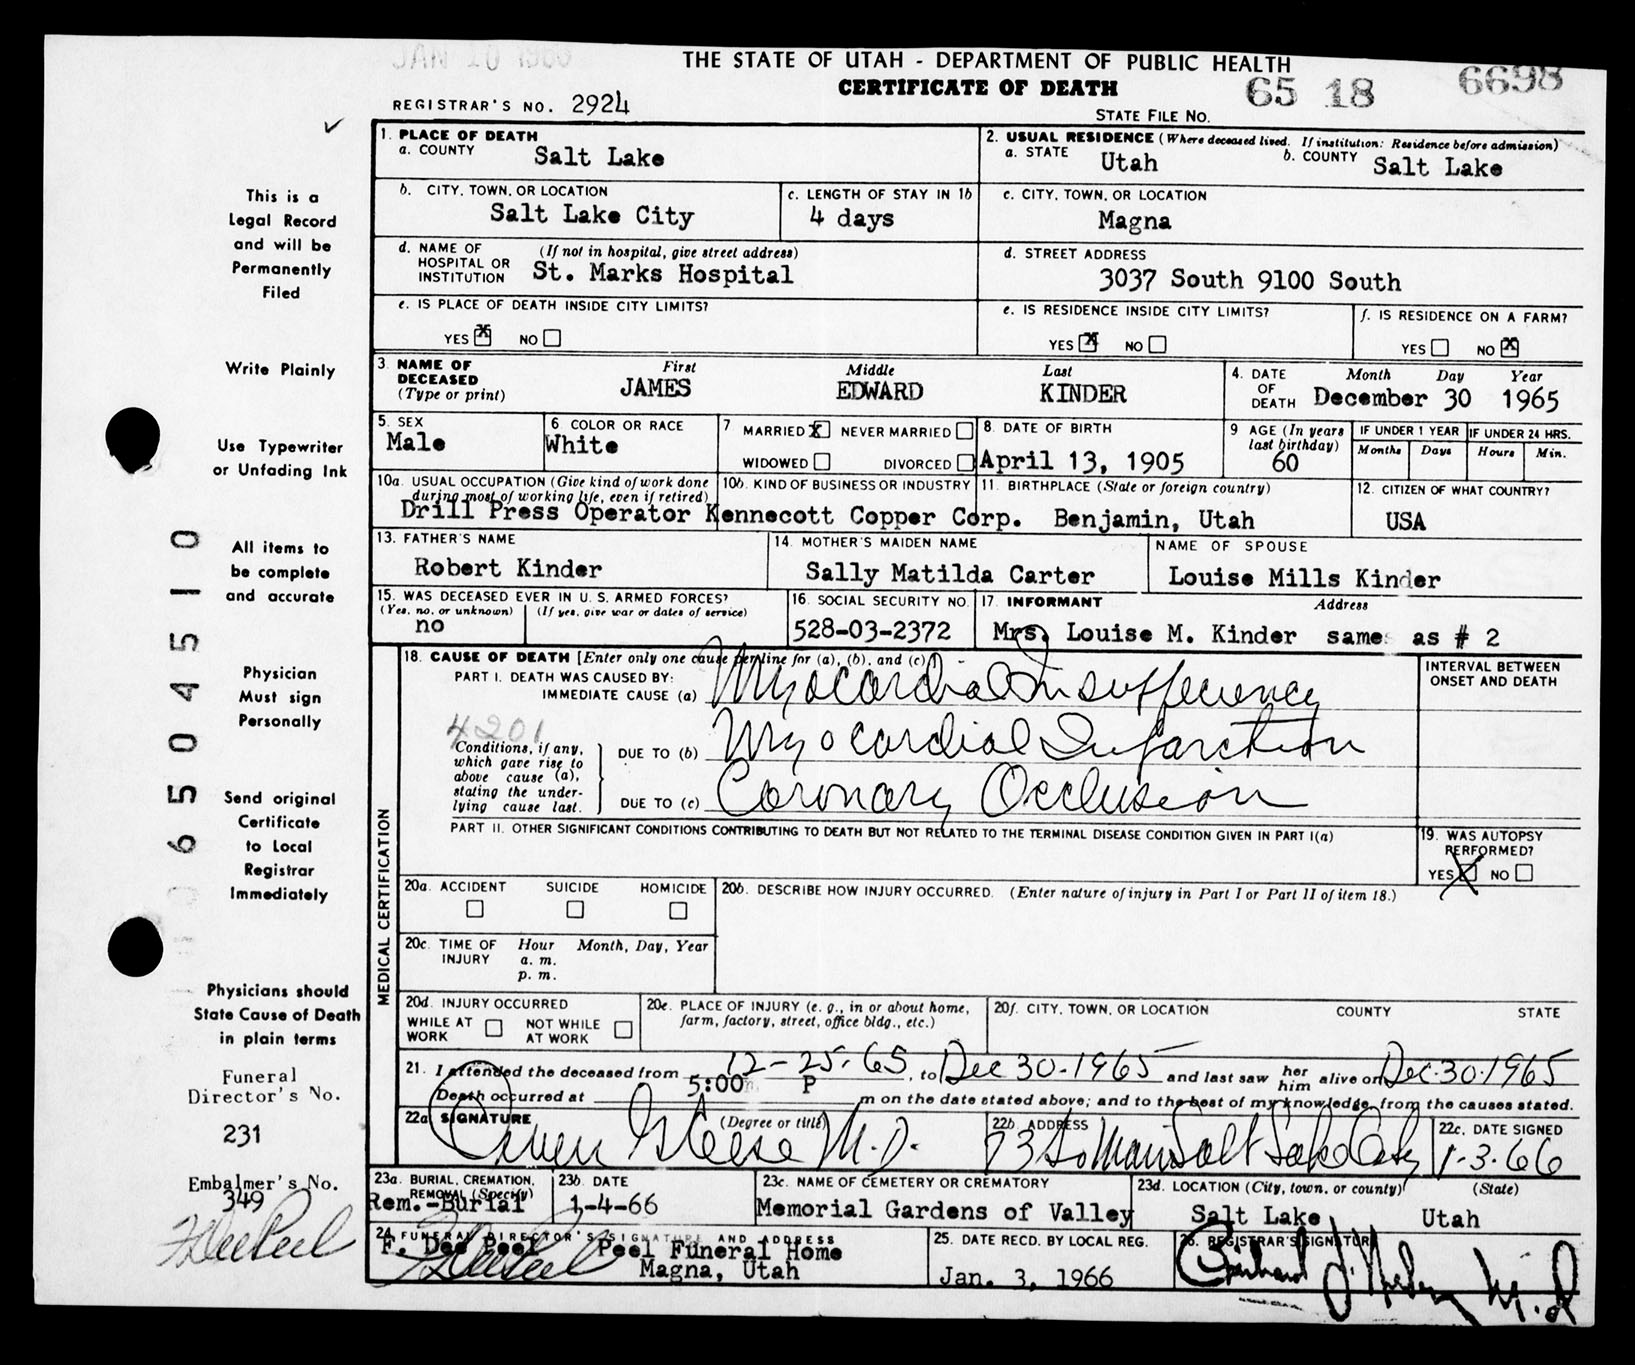 JAN 10 1966
THE STATE OF UTAH - DEPARTMENT OF PUBLIC HEALTH
CERTIFICATE OF DEATH
65 18 6698
REGISTRAR'S NO. 2924
STATE FILE NO.
1. PLACE OF DEATH
a. COUNTY Salt Lake
2. USUAL RESIDENCE (Where deceased lived. If institution: Residence before admission)
a. STATE Utah b. COUNTY Salt Lake
b. CITY, TOWN, OR LOCATION Salt Lake City
c. LENGTH OF STAY IN 1b 4 days
c. CITY, TOWN, OR LOCATION Magna
d. NAME OF HOSPITAL OR INSTITUTION (If not in hospital, give street address) St. Marks Hospital
d. STREET ADDRESS 3037 South 9100 South
e. IS PLACE OF DEATH INSIDE CITY LIMITS?
YES X NO
e. IS RESIDENCE INSIDE CITY LIMITS?
YES X NO
f. IS RESIDENCE ON A FARM?
YES NO X
3. NAME OF DECEASED (Type or print)
First JAMES Middle EDWARD Last KINDER
4. DATE OF DEATH Month Day Year December 30 1965
5. SEX Male
6. COLOR OR RACE White
7 MARRIED X NEVER MARRIED
WIDOWED DIVORCED
8. DATE OF BIRTH April 13, 1905
9 AGE (In years last birthday) 60
IF UNDER 1 YEAR Months Days
IF UNDER 24 HRS. Hours Min.
10a. USUAL OCCUPATION (Give kind of work done during most of working life, even if retired) Drill Press Operator
10b. KIND OF BUSINESS OR INDUSTRY Kennecott Copper Corp.
11. BIRTHPLACE (State or foreign country) Benjamin, Utah
12. CITIZEN OF WHAT COUNTRY? USA
13. FATHER'S NAME Robert Kinder
14. MOTHER'S MAIDEN NAME Sally Matilda Carter
NAME OF SPOUSE Louise Mills Kinder
15. WAS DECEASED EVER IN U.S. ARMED FORCES?
(Yes, no, or unknown) no (If yes, give war or dates of service)
16. SOCIAL SECURITY NO. 528-03-2372
17. INFORMANT Address
Mrs. Louise M. Kinder same as # 2
18. CAUSE OF DEATH [Enter only one cause per line for (a), (b), and (c).]
PART I. DEATH WAS CAUSED BY:
IMMEDIATE CAUSE (a) Myocardial Insufficiency
INTERVAL BETWEEN ONSET AND DEATH
4201
Conditions, if any, which gave rise to above cause (a), stating the underlying cause last.
DUE TO (b) Myocardial Infarction
DUE TO (c) Coronary Occlusion
PART II. OTHER SIGNIFICANT CONDITIONS CONTRIBUTING TO DEATH BUT NOT RELATED TO THE TERMINAL DISEASE CONDITION GIVEN IN PART I(a)
19. WAS AUTOPSY PERFORMED?
YES X NO
MEDICAL CERTIFICATION
20a. ACCIDENT SUICIDE HOMICIDE
20b. DESCRIBE HOW INJURY OCCURRED. (Enter nature of injury in Part I or Part II of item 18.)
20c. TIME OF INJURY Hour a. m. p. m. Month, Day, Year
20d. INJURY OCCURRED
WHILE AT WORK NOT WHILE AT WORK
20e. PLACE OF INJURY (e. g., in or about home, farm, factory, street, office bldg., etc.)
20f. CITY, TOWN, OR LOCATION COUNTY STATE
21. I attended the deceased from 12-25-65, to Dec 30-1965 and last saw her him alive on Dec.30.1965
Death occurred at 5:00 P m on the date stated above; and to the best of my knowledge, from the causes stated.
22a SIGNATURE (Degree or title) M.D.
22b. ADDRESS 73 So Main Salt Lake City
22c. DATE SIGNED 1-3-66
23a. BURIAL, CREMATION, REMOVAL (Specify) Rem.-Burial
23b. DATE 1-4-66
23c. NAME OF CEMETERY OR CREMATORY Memorial Gardens of Valley
23d. LOCATION (City, town, or county) (State) Salt Lake Utah
24 FUNERAL DIRECTOR'S SIGNATURE AND ADDRESS
F. Dee Peel Peel Funeral Home
Magna, Utah
25. DATE RECD. BY LOCAL REG. Jan. 3, 1966
26. REGISTRAR'S SIGNATURE
This is a
Legal Record
and will be
Permanently
Filed
Write Plainly
Use Typewriter
or Unfading Ink
All items to
be complete
and accurate
Physician
Must sign
Personally
Send original
Certificate
to Local
Registrar
Immediately
Physicians should
State Cause of Death
in plain terms
Funeral
Director's No.
231
Embalmer's No.
349
F Dee Peel
650 4510